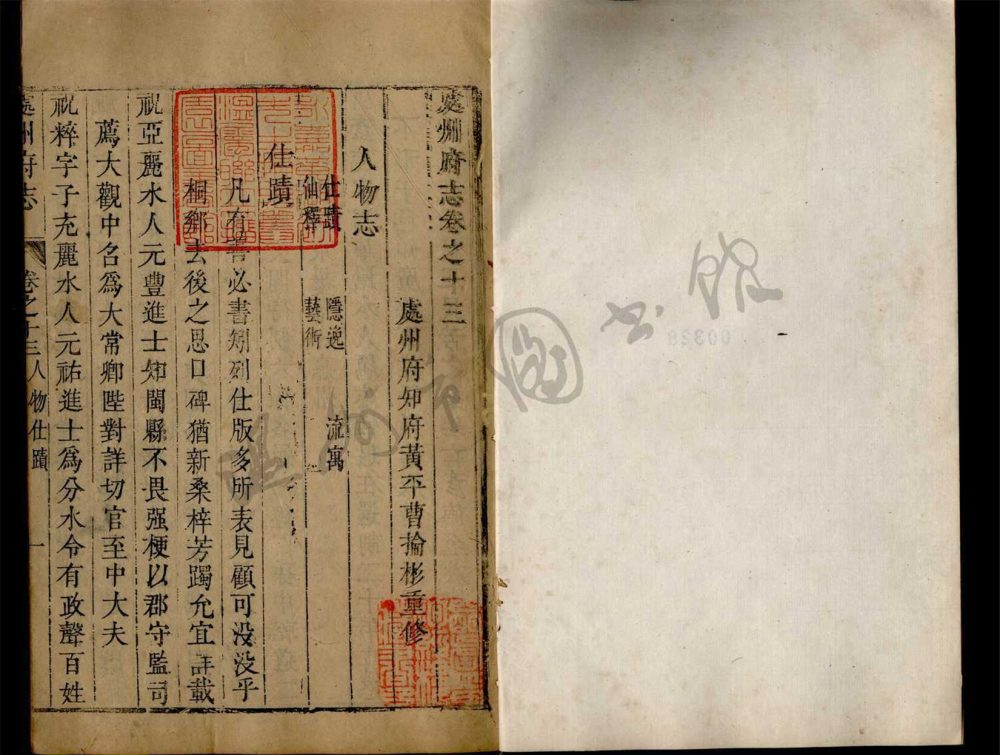 處州府志卷之十三
處州府知府黃平曹掄彬重修
人物志
仕蹟 隱逸 流寓
仙釋 藝術
仕蹟
凡有善必書矧列仕版多所表見顧可没没乎
桐鄉去後之思口碑猶新桑梓芳躅允宜詳載
祝亞麗水人元豐進士知閩縣不畏强梗以郡守監司
薦大觀中名爲大常卿陛對詳切官至中大夫
祝粹字子充麗水人元祐進士爲分水令有政聲百姓
處州府志 卷之十三 人物仕蹟 一
圖書館
00328